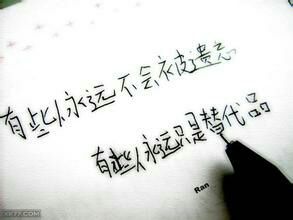 有些人永远不会被遗忘
有些人永远只是替代品
Ran